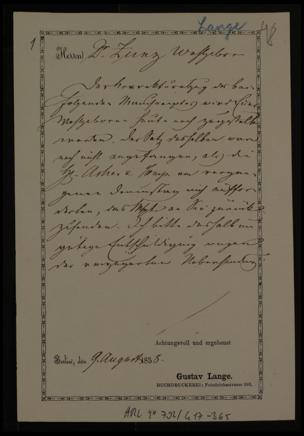 Lange
48
1
Herrn Dr. Zunz Wohlgeboren
Der Korrekturabzug des bei-
folgenden Manuscriptes wird Euer
Wohlgeboren heute noch zugestellt
werden. Der Satz desselben war
noch nicht angefangen, als die
H. Asher & Comp am vergan-
genen Donnerstag mich auffor-
derten, das Mspt an Sie zurück
zusenden. Ich bitte deshalb um
gütige Entschuldigung wegen
der verzögerten Uebersendung
Achtungsvoll und ergebenst
Berlin, den 9. August 1858.
Gustav Lange.
BUCHDRUCKEREI: Friedrichsstrasse 103.
ARC 4° 792/G17-365